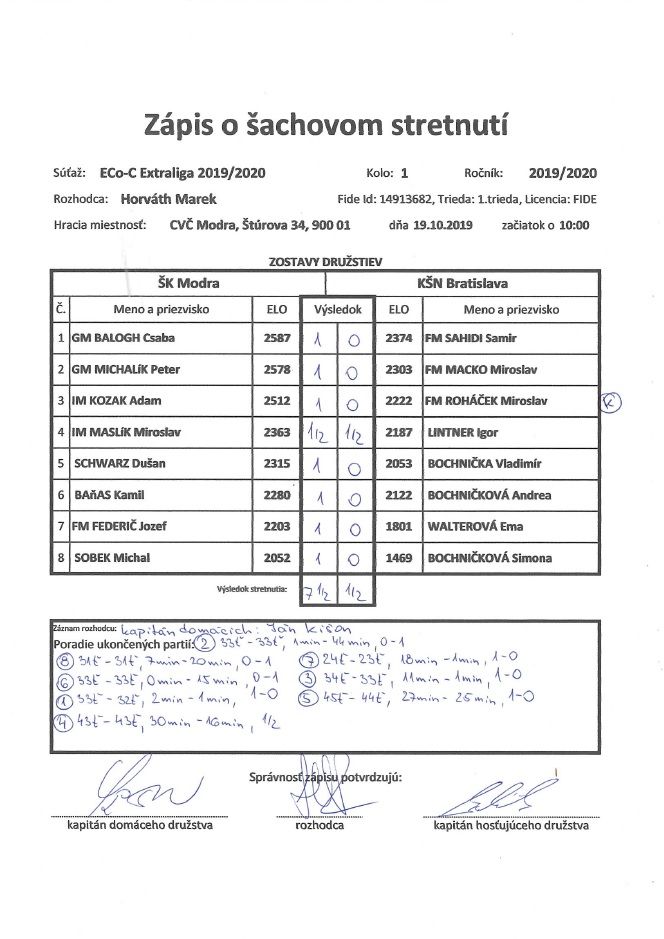 Zápis o šachovom stretnutí
Súťaž: ECo-C Extraliga 2019/2020 Kolo: 1 Ročník: 2019/2020
Rozhodca: Horváth Marek Fide Id: 14913682, Trieda: 1.trieda, Licencia: FIDE
Hracia miestnosť: CVČ Modra, Štúrova 34, 900 01 dňa 19.10.2019 začiatok o 10:00
ZOSTAVY DRUŽSTIEV
ŠK Modra KŠN Bratislava
Č. Meno a priezvisko ELO Výsledok ELO Meno a priezvisko
1 GM BALOGH Csaba 2587 1 0 2374 FM SAHIDI Samir
2 GM MICHALíK Peter 2578 1 0 2303 FM MACKO Miroslav
3 IM KOZAK Adam 2512 1 0 2222 FM ROHÁČEK Miroslav K
4 IM MASLíK Miroslav 2363 1/2 1/2 2187 LINTNER Igor
5 SCHWARZ Dušan 2315 1 0 2053 BOCHNIČKA Vladimír
6 BAňAS Kamil 2280 1 0 2122 BOCHNIČKOVÁ Andrea
7 FM FEDERIČ Jozef 2203 1 0 1801 WALTEROVÁ Ema
8 SOBEK Michal 2052 1 0 1469 BOCHNIČKOVÁ Simona
Výsledok stretnutia: 7 1/2 1/2
Záznam rozhodcu: kapitán domácich: Ján Kišon
Poradie ukončených partií: 2 33ť-33ť, 1min-44min, 0-1
8 31ť-31ť, 7min-20min, 0-1 7 24ť-23ť, 18min-1min, 1-0
6 33ť-33ť, 0min-15min, 0-1 3 34ť-33ť, 11min-1min, 1-0
1 33ť-32ť, 2min-1min, 1-0 5 45ť-44ť, 27min-25min, 1-0
4 43ť-43ť, 30min-16min, 1/2
Správnosť zápisu potvrdzujú:
kapitán domáceho družstva rozhodca kapitán hosťujúceho družstva